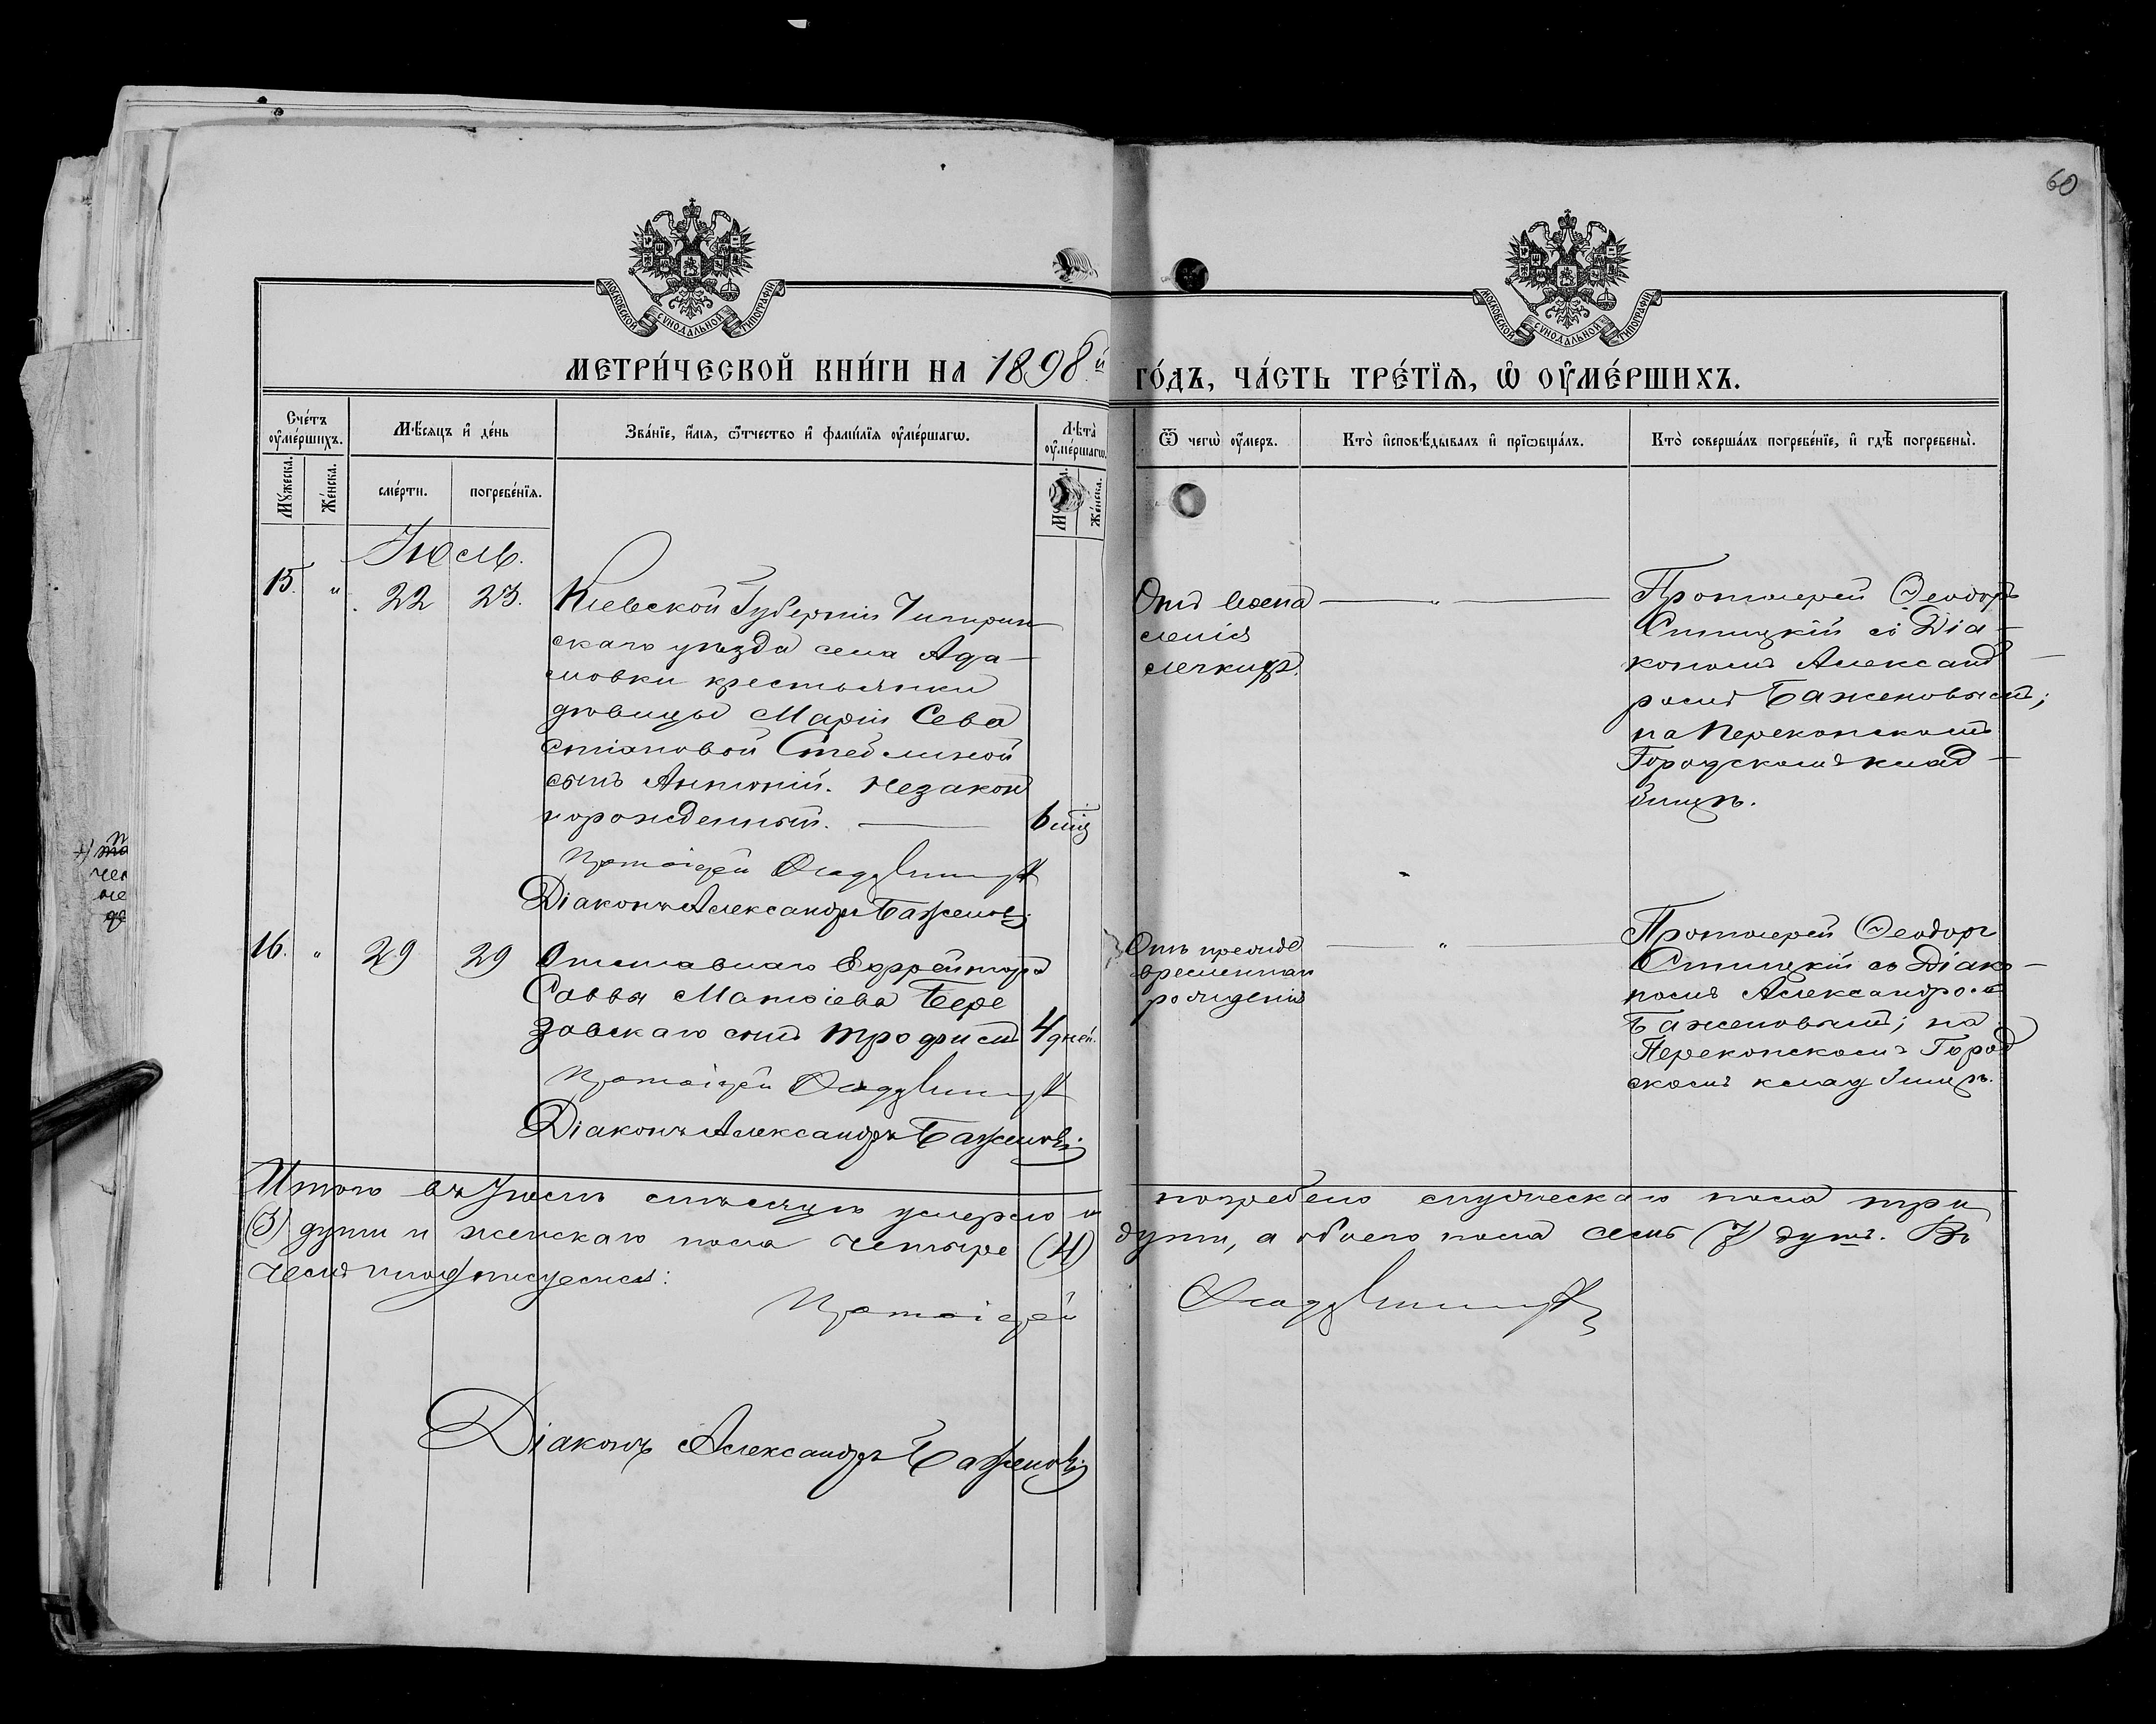 60
МОСКОВСКОЙ СУНОДАЛЬНОЙ ТИПОГРАФІИ
МОСКОВСКОЙ СУНОДАЛЬНОЙ ТИПОГРАФІИ
МЕТРИ́ЧЕСКОЙ КНИ́ГИ НА 1898й ГО́ДЪ, ЧА́СТЬ ТРЕ́ТЇѦ, Ѡ҆ ОУ҆МЕ́РШИХЪ.
Счéтъ оу҆мéршихъ.
Мѣ́сѧцъ и҆ дéнь
Звáнїе, и҆́мѧ, ѻ҆́тчество и҆ фамѝлїѧ оу҆мéршагѡ.
Лѣ̀та оу҆мéршагѡ.
Ѿ чегѡ̀ оу҆́меръ.
Ктò и҆сповѣ́дывалъ и҆ прїѡбщáлъ.
Ктò совершáлъ погребéнїе, и҆ гдѣ̀ погребены̀.
Мꙋ́жеска.
Же́нска.
смéрти.
погребéнїѧ.
Же́нска.
Іюль.
15. " 22 23.
Кіевской Губерніи Чигирин
скаго уѣзда села Ада-
мовки крестьянки
дѣвицы Маріи Сева
стіановой Стеблиной
сынъ Антоній. незакон
норожденный. — 6 мц
Протоіерей
Діаконъ Александръ Баженовъ
Отъ воспа
ленія
легкихъ.
— " —
Протоіерей Ѳеодоръ
Стицкій съ Діа-
кономъ Александ-
ромъ Баженовымъ;
на Перекопскомъ
Городскомъ клад-
бищѣ.
16. " 29 29
Отставнаго Ефрейтора
Саввы Матѳіева Бере
зовскаго сынъ Трофимъ 4 дней.
Протоіерей
Діаконъ Александръ Баженовъ
Отъ прежде
временнаго
рожденія
— " —
Протоіерей Ѳеодоръ
Стицкій съ Діако-
номъ Александромъ
Баженовымъ; на
Перекопскомъ Город
скомъ кладбищѣ.
Итого въ Іюлѣ мѣсяцѣ умерло и погребено мужескаго пола три
(3) души и женскаго пола четыре (4) души, а обоего пола семь (7) душъ. Въ
чемъ и подписуемся:
Протоіерей
Діаконъ Александръ Баженовъ